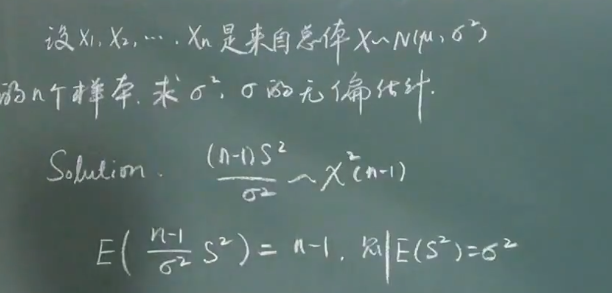 设 X₁, X₂, …, Xn 是来自总体 X~N(μ, σ²)
的n个样本, 求 σ², σ 的无偏估计.
Solution. (n-1)S²/σ² ~ χ²(n-1)
E( n-1/σ² S² ) = n-1, 则 E(S²)=σ²